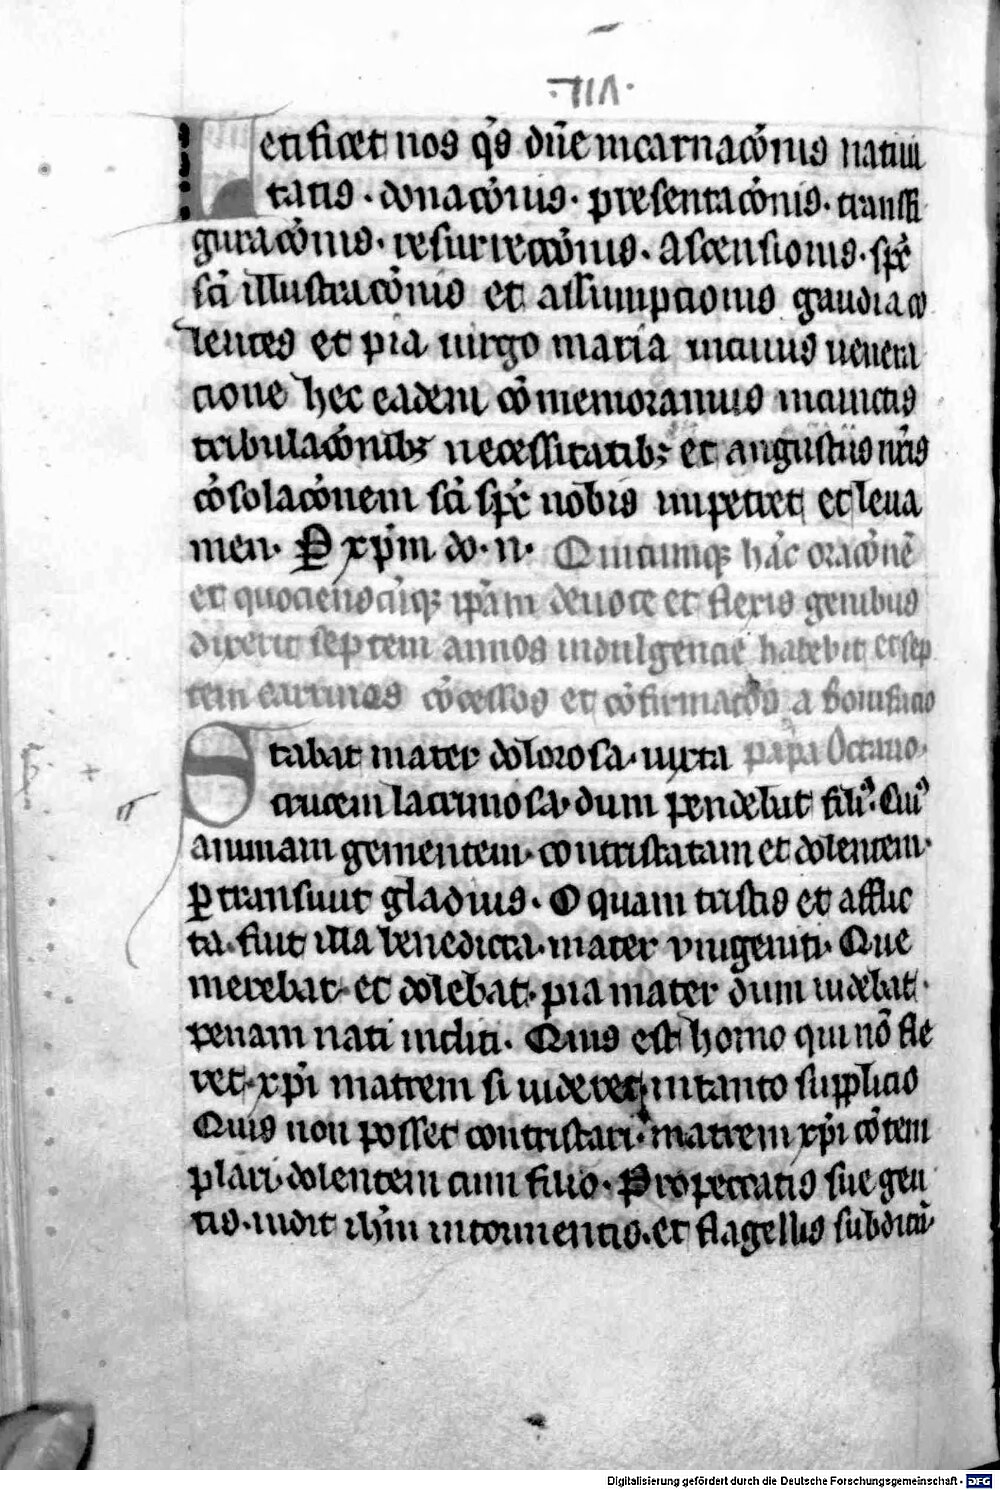 ·VII·
Letificet nos q̄s dn̄e incarnacōnis natiui
tatis · donacōnis · presentacōnis · transfi
guracōnis · resurreccōnis · ascensionis · sp̄s
sc̄i illustracōnis et assumpcionis gaudia co
lentes et pia virgo maria in cuius venera
cione hec eadem cōmemoramus in cunctis
tribulacōnibꝫ necessitatibꝫ et angustiis nr̄is
cōsolacōnem sc̄i sp̄s nobis impetret et leua
men · P xp̄m do · n · Quicumqꝫ hāc oracōnē
et quociēscūqꝫ ip̄am deuote et flexis genibus
dixerit septem annos indulgencie habebit et sep
tem carrinas cōcessas et cōfirmatas a bonifacio
Stabat mater dolorosa · iuxta papa Octauo ·
crucem lacrimosa · dum pendebat filiꝰ · Cuiꝰ
animam gementem · contristatam et dolentem ·
ꝑtransiuit gladius · O quam tristis et afflic
ta · fuit illa benedicta · mater vnigeniti · Que
merebat · et dolebat · pia mater dum uidebat ·
penam nati incliti · Quis est homo qui nō fle
ret · xp̄i matrem si uideret · in tanto supplicio
Quis non posset contristari · matrem xp̄i cōtem
plari · dolentem cum filio · Pro peccatis sue gen
tis · uidit ih̄m in tormentis · et flagellis subditū ·
Digitalisierung gefördert durch die Deutsche Forschungsgemeinschaft - DFG